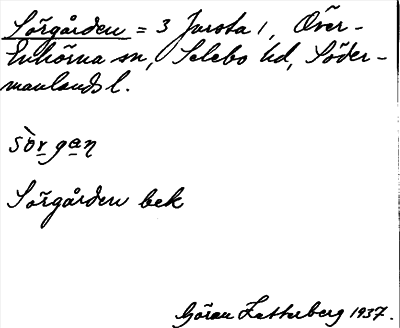 Sörgården = 3 Jursta 1, Över-
Enhörna sn, Selebo hd, Söder-
manlands l.
sö̀r̲ ga̲ɳ
Sörgården bek
Göran Zetterberg 1937.